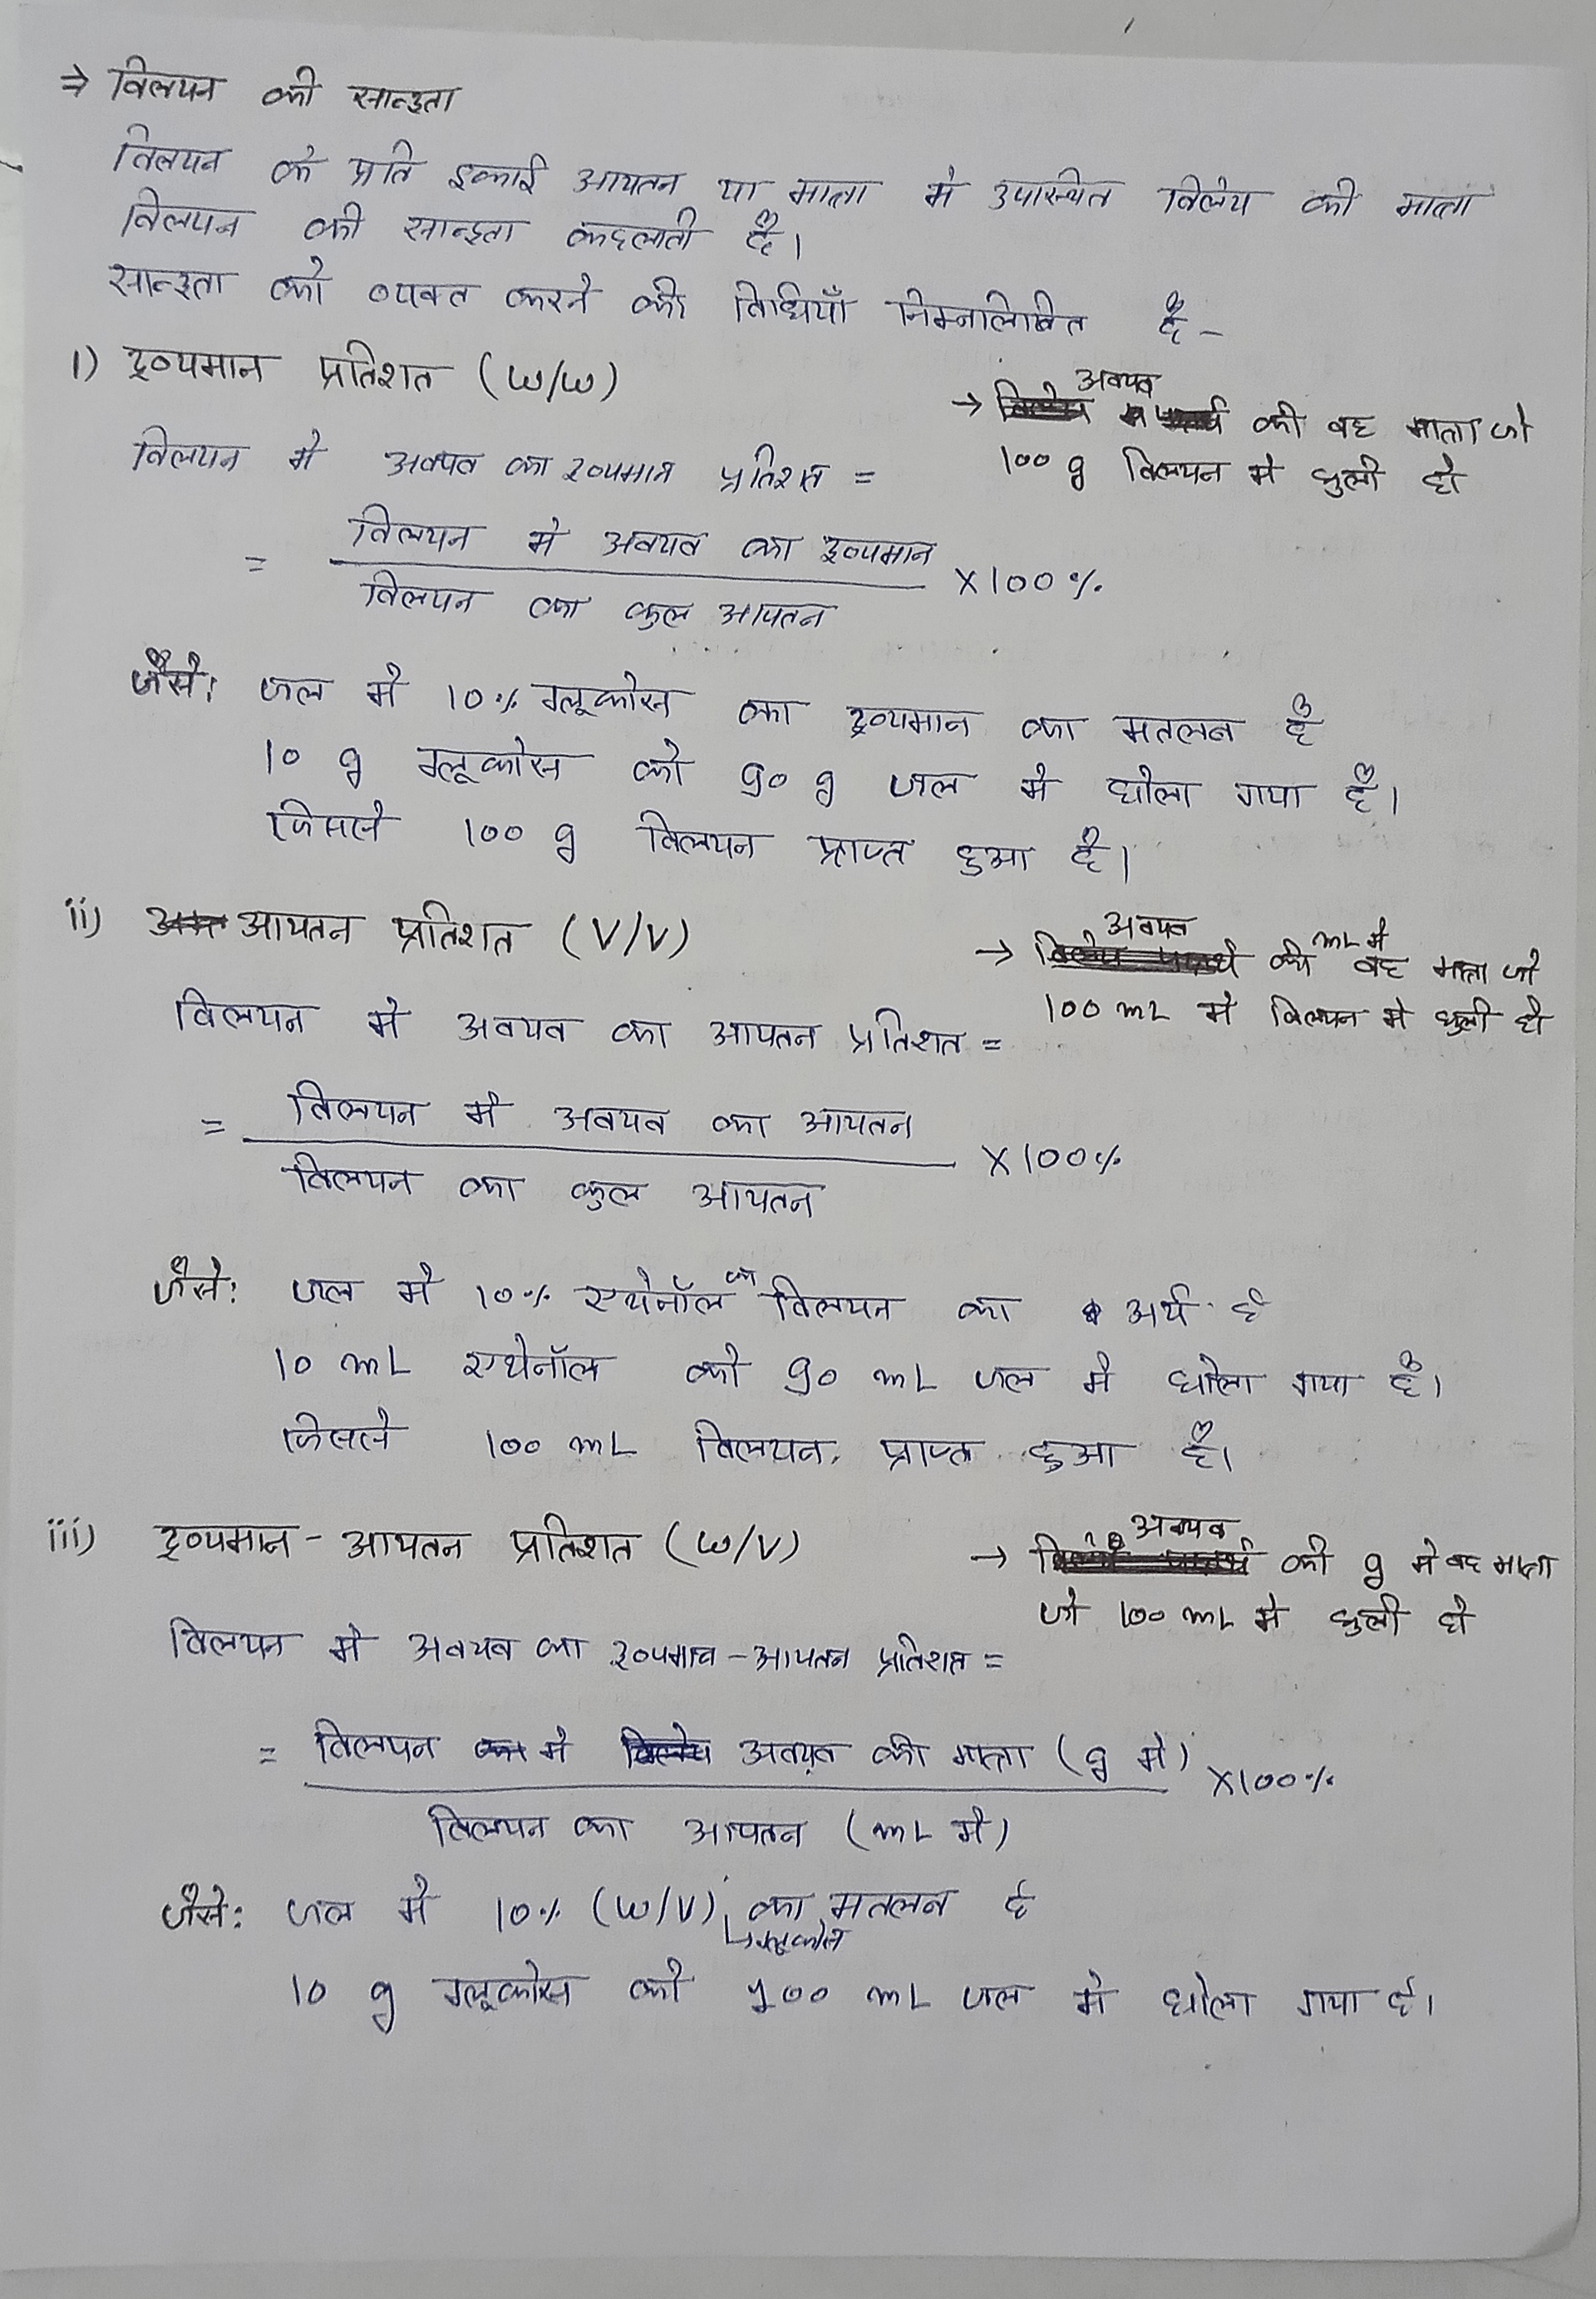 ⇒ विलयन की सान्द्रता
विलयन के प्रति इकाई आयतन या मात्रा में उपस्थित विलेय की मात्रा
विलयन की सान्द्रता कहलाती है।
सान्द्रता को व्यक्त करने की विधियाँ निम्नलिखित है -
i) द्रव्यमान प्रतिशत (w/w)
→ अवयव की वह मात्रा जो
100 g विलयन मे घुली हो
विलयन मे अवयव का द्रव्यमान प्रतिशत =
= विलयन मे अवयव का द्रव्यमान
विलयन का कुल आयतन
×100%
जैसे: जल मे 10% ग्लूकोस का द्रव्यमान का मतलब है
10 g ग्लूकोस को 90 g जल मे घोला गया है।
जिससे 100 g विलयन प्राप्त हुआ है।
ii) आयतन प्रतिशत (V/V)
→ अवयव की mL मे वह मात्रा जो
100 mL मे विलयन मे घुली हो
विलयन मे अवयव का आयतन प्रतिशत =
= विलयन मे अवयव का आयतन
विलयन का कुल आयतन
×100%
जैसे: जल मे 10% एथेनॉल का विलयन का अर्थ है
10 mL एथेनॉल को 90 mL जल मे घोला गया है।
जिससे 100 mL विलयन प्राप्त हुआ है।
iii) द्रव्यमान - आयतन प्रतिशत (w/V)
→ अवयव की g मे वह मात्रा
जो 100 mL मे घुली हो
विलयन मे अवयव का द्रव्यमान - आयतन प्रतिशत =
= विलयन मे अवयव की मात्रा (g मे)
विलयन का आयतन (mL मे)
×100%
जैसे: जल मे 10% (w/V) का मतलब है
↳ ग्लूकोस
10 g ग्लूकोस को 100 mL जल मे घोला गया है।